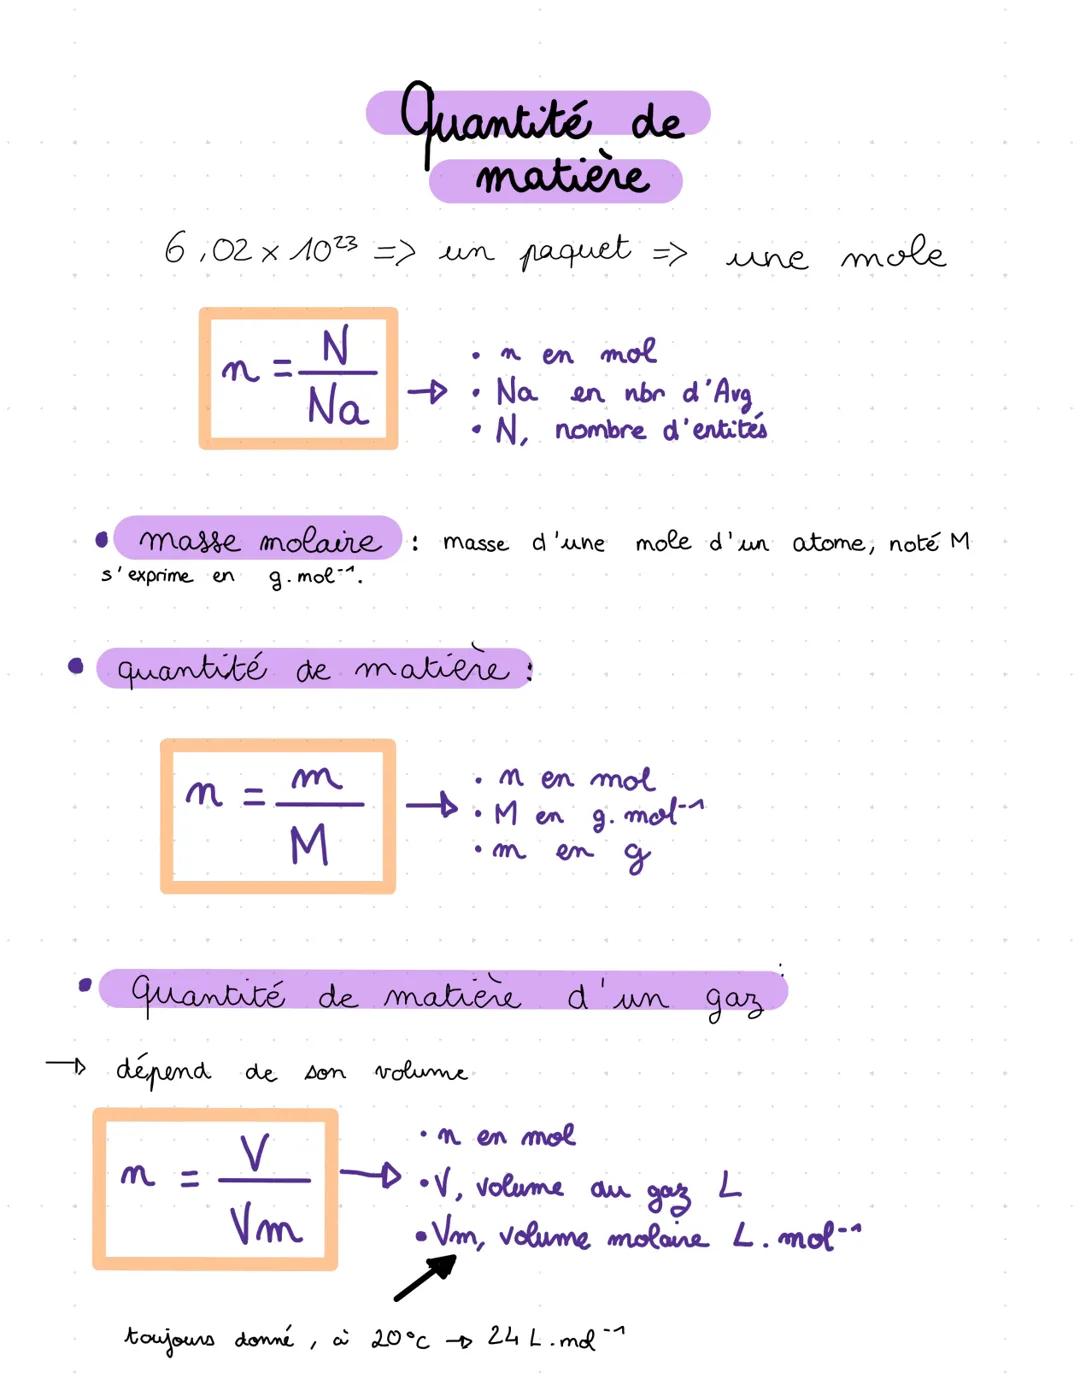 Quantité de
matière
6,02 × 10²³ => un paquet => une mole
n = N / Na
• n en mol
• Na en nbr d'Avg
• N, nombre d'entités
• masse molaire : masse d'une mole d'un atome, noté M
s'exprime en g.mol⁻¹.
• quantité de matière :
n = m / M
• n en mol
• M en g.mol⁻¹
• m en g
• Quantité de matière d'un gaz :
→ dépend de son volume
n = V / Vm
• n en mol
• V, volume du gaz L
• Vm, volume molaire L.mol⁻¹
toujours donné, à 20°C → 24 L.mol⁻¹